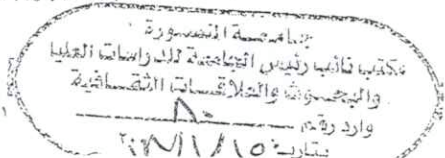 جامعة المنصورة
مكتب نائب رئيس الجامعة للدراسات العليا
والبحوث والعلاقات الثقافية
وارد رقم ٨٠
بتاريخ